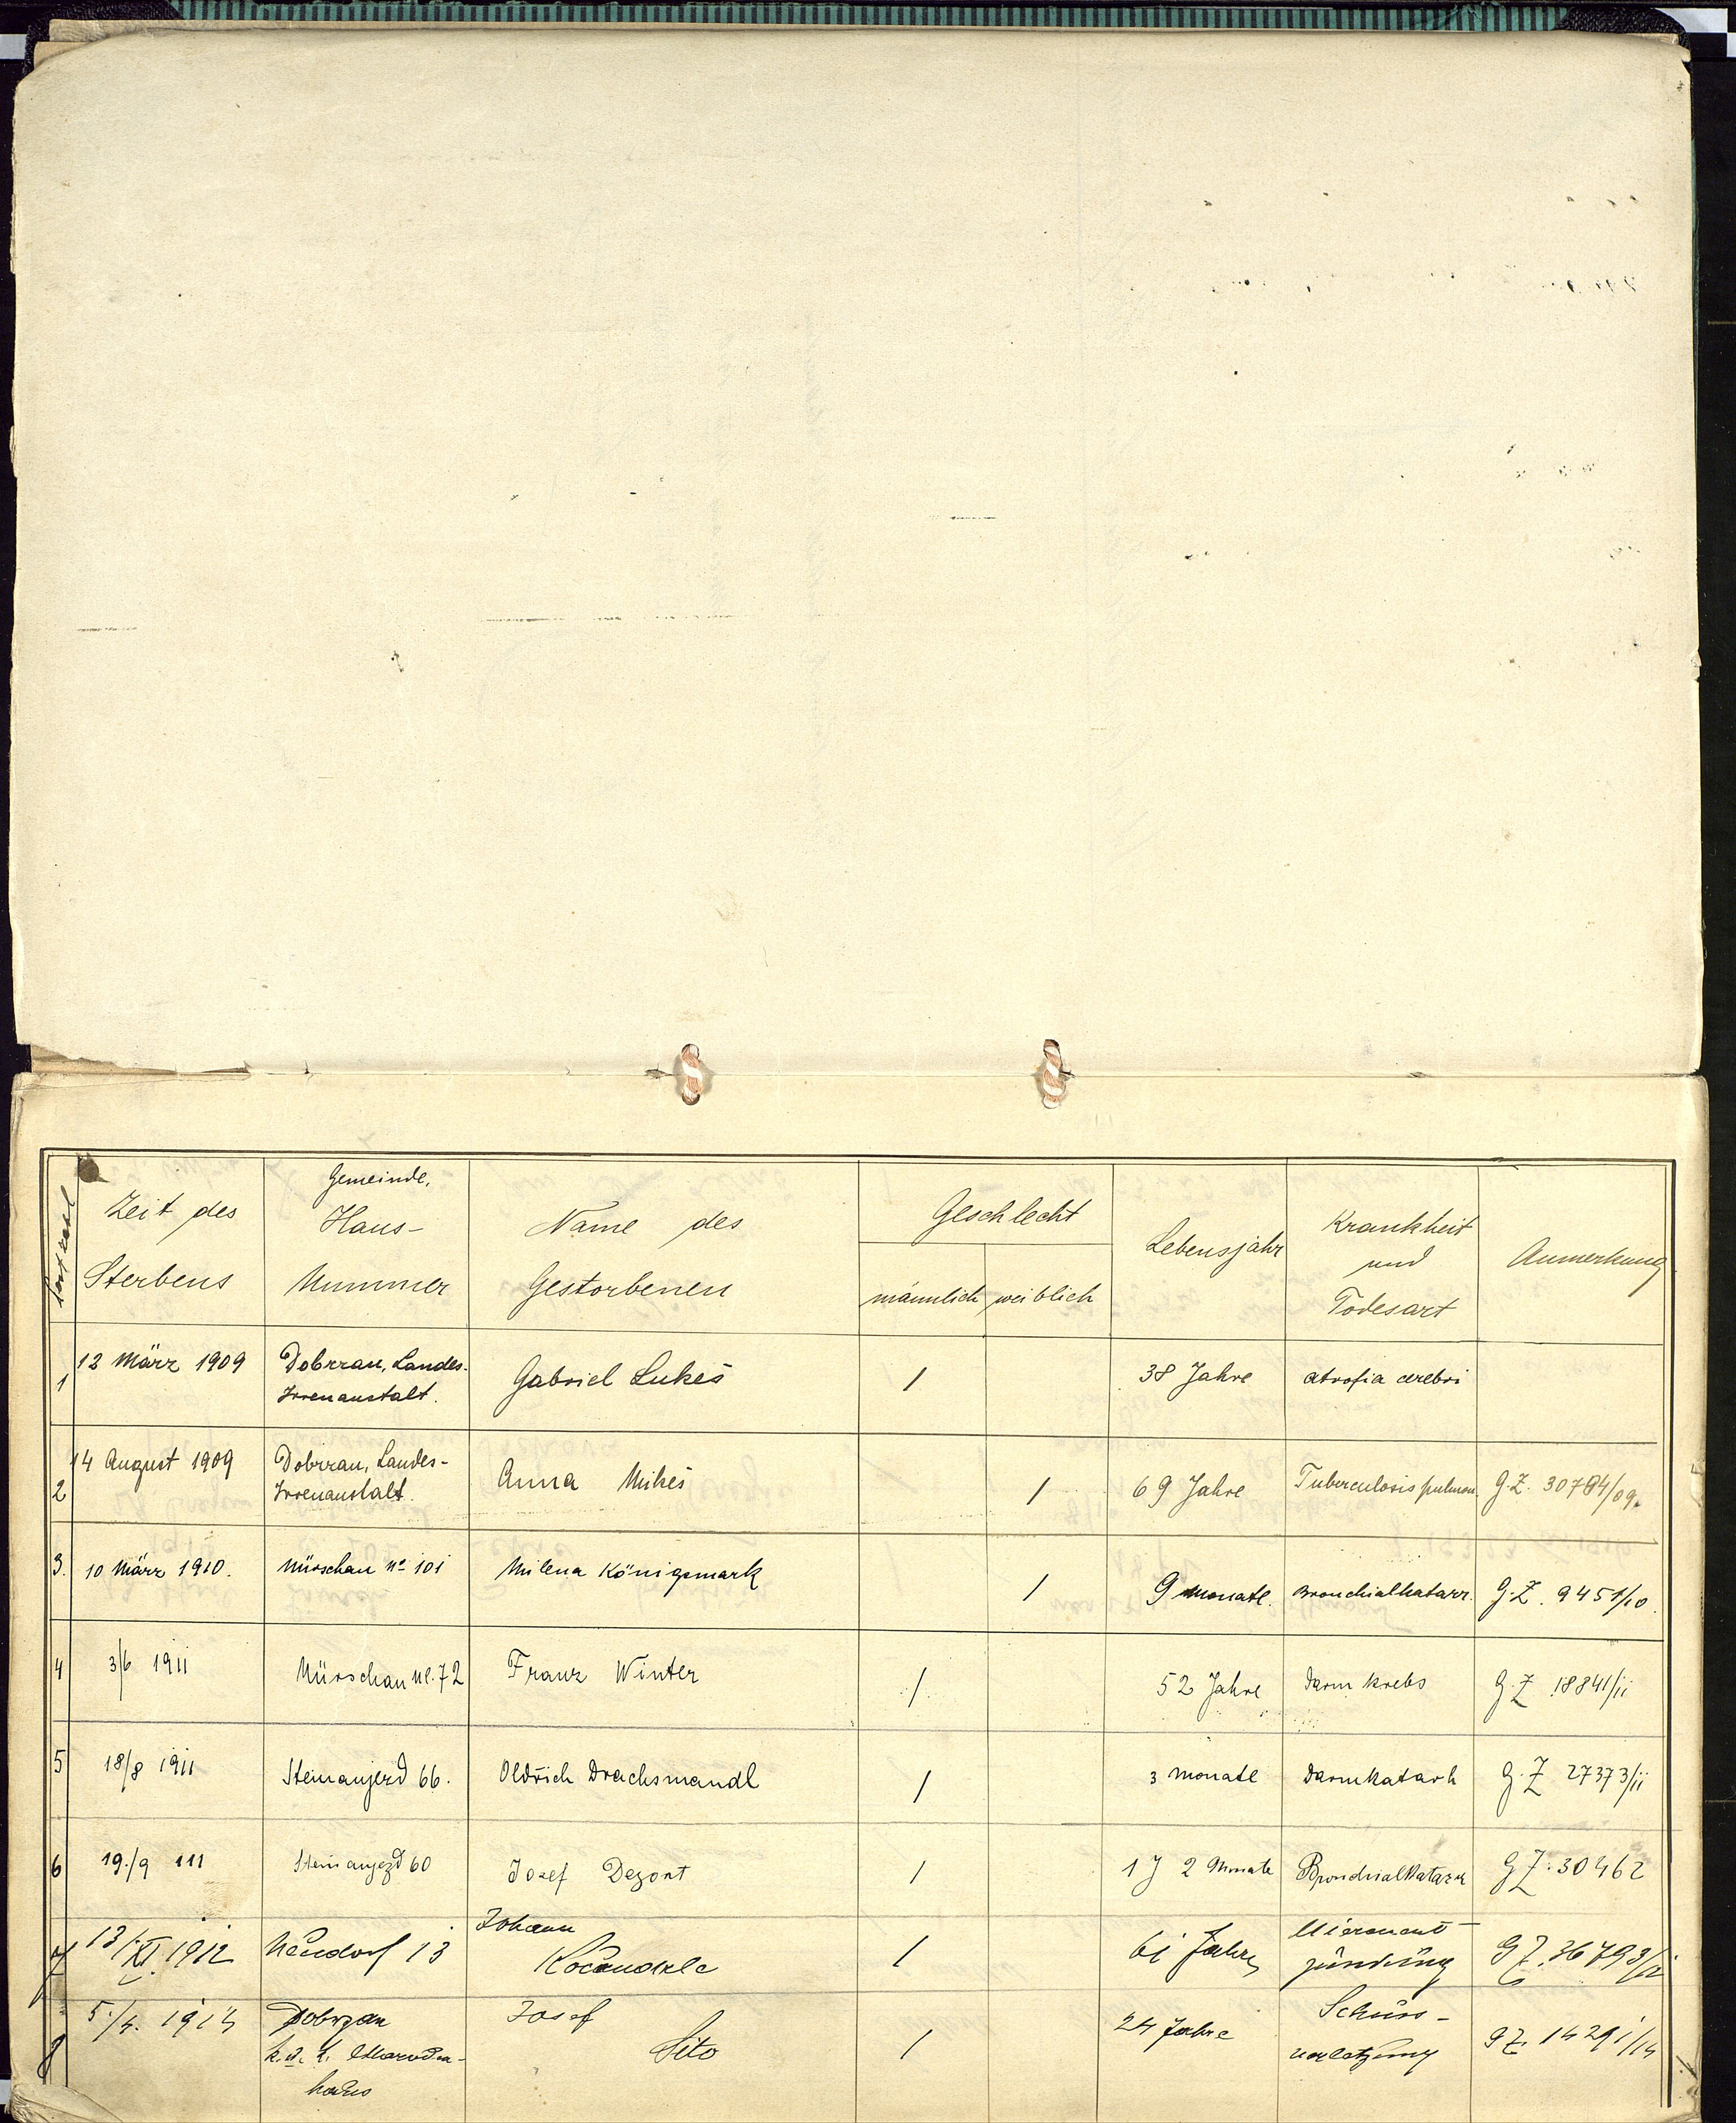 Zeit des Sterbens
Gemeinde, Haus-Nummer
Name des Gestorbenen
Geschlecht
männlich weiblich
Lebensjahr
Krankheit und Todesart
Anmerkung
1 12 März 1909 Dobrzan, Landes- Gabriel Lukeš / 38 Jahre atrofia cerebri
Irrenanstalt.
2 14 August 1909 Dobrzan, Landes- Anna Mikeš / 69 Jahre Tuberculosis pulmon. G.Z. 30784/09.
Irrenanstalt.
3. 10 März 1910. Nürschau No 101 Milena Königsmark / 9 Monate. Bronchialkatarr. G.Z. 9451/10.
4 3/6 1911 Nürschau No. 72 Franz Winter / 52 Jahre Darm krebs G.Z 18841/11
5 18/8 1911 Steinaujezd 66. Oldřich Drachsmandl / 3 Monate Darmkatarh G.Z 27373/11
6 19./9 111 Steinaujezd 60 Josef Dezort / 1 J 2 Monate Bronchialkatarr G Z. 30462
7 13/XI. 1912 Neudorf 13 Johann / 61 Jahre Nierenent-
Kočandrle zündung G Z. 36793/12
8 5./4. 1914 Dobrzan Josef / 24 Jahre Schuss- G Z. 14291/14
k. u. k. Maroden- Sito verletzung
haus